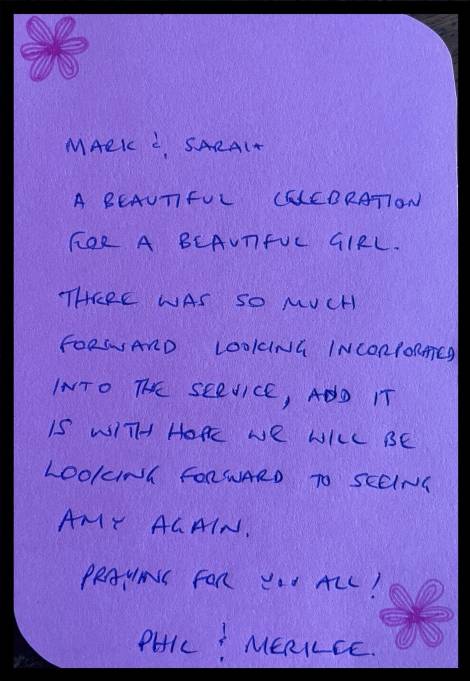 MARK & SARAH
A BEAUTIFUL CELEBRATION
FOR A BEAUTIFUL GIRL.
THERE WAS SO MUCH
FORWARD LOOKING INCORPORATED
INTO THE SERVICE, AND IT
IS WITH HOPE WE WILL BE
LOOKING FORWARD TO SEEING
AMY AGAIN.
PRAYING FOR YOU ALL!
PHIL & MERILEE.